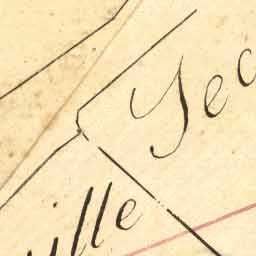 Sec
ville